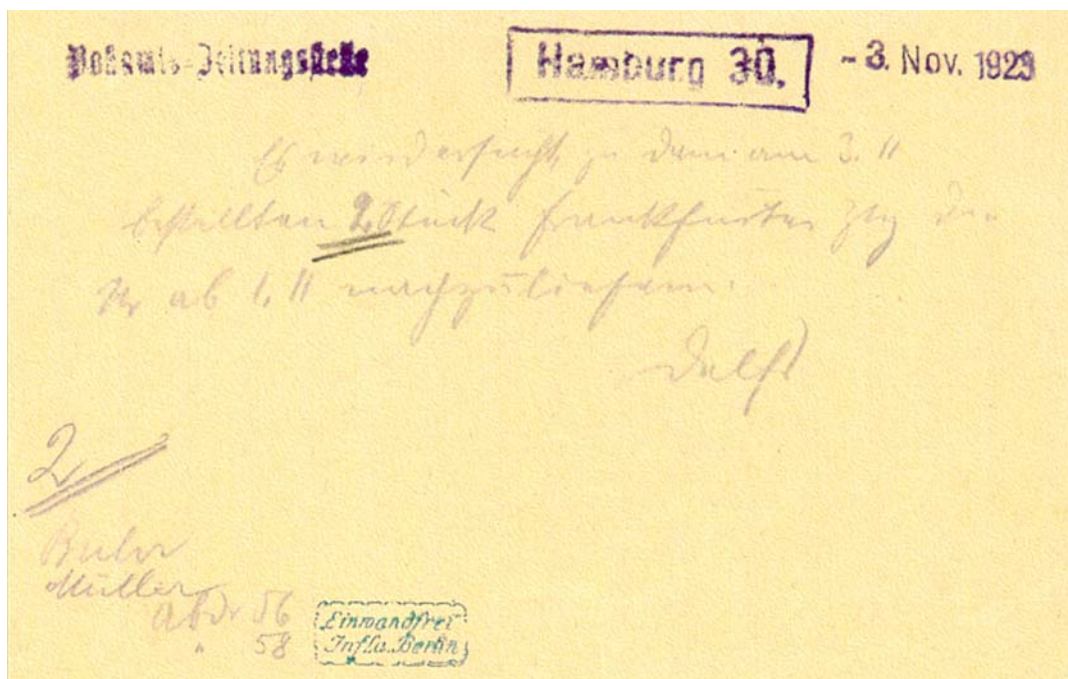 Postamts-Zeitungsstelle
Hamburg 30.
- 3. Nov. 1923
Es wird ersucht, zu dem am 3. 11
bestellten 2 Stück Frankfurter Ztg die
Nr ab 1. 11 nachzuliefern.
2
Müller
56
" 58
Einwandfrei
Infla Berlin